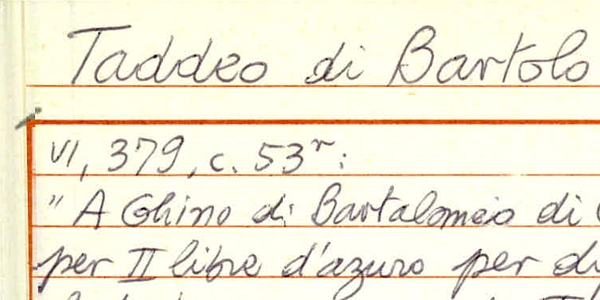 Taddeo di Bartolo
VI, 379, c. 53r:
" A Ghino di Bartalomeio di
per II libre d'azuro per di